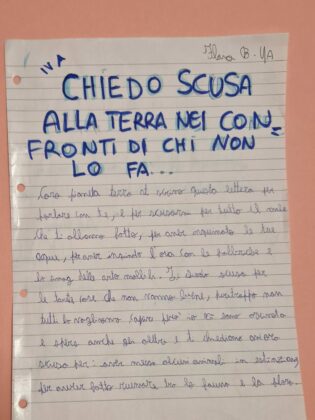 Flora B. 4A
IV A
CHIEDO SCUSA
ALLA TERRA NEI CON=
FRONTI DI CHI NON
LO FA...
Cara pianeta terra ti scrivo questa lettera per
parlare con te, e per scusarmi per tutto il male
che ti abbiamo fatto, per aver inquinato le tue
acque, per aver inquinato l'aria con le fabbriche e
lo smog delle automobili. Ti chiedo scusa per
le tante cose che non vanno bene, purtroppo non
tutti lo vogliamo capire però io ci sono
e spero anche gli altri e ti chiediamo ancora
scusa per: aver messo alcuni animali in estinzione
per averti fatto rovinare tra la fauna e la flora.